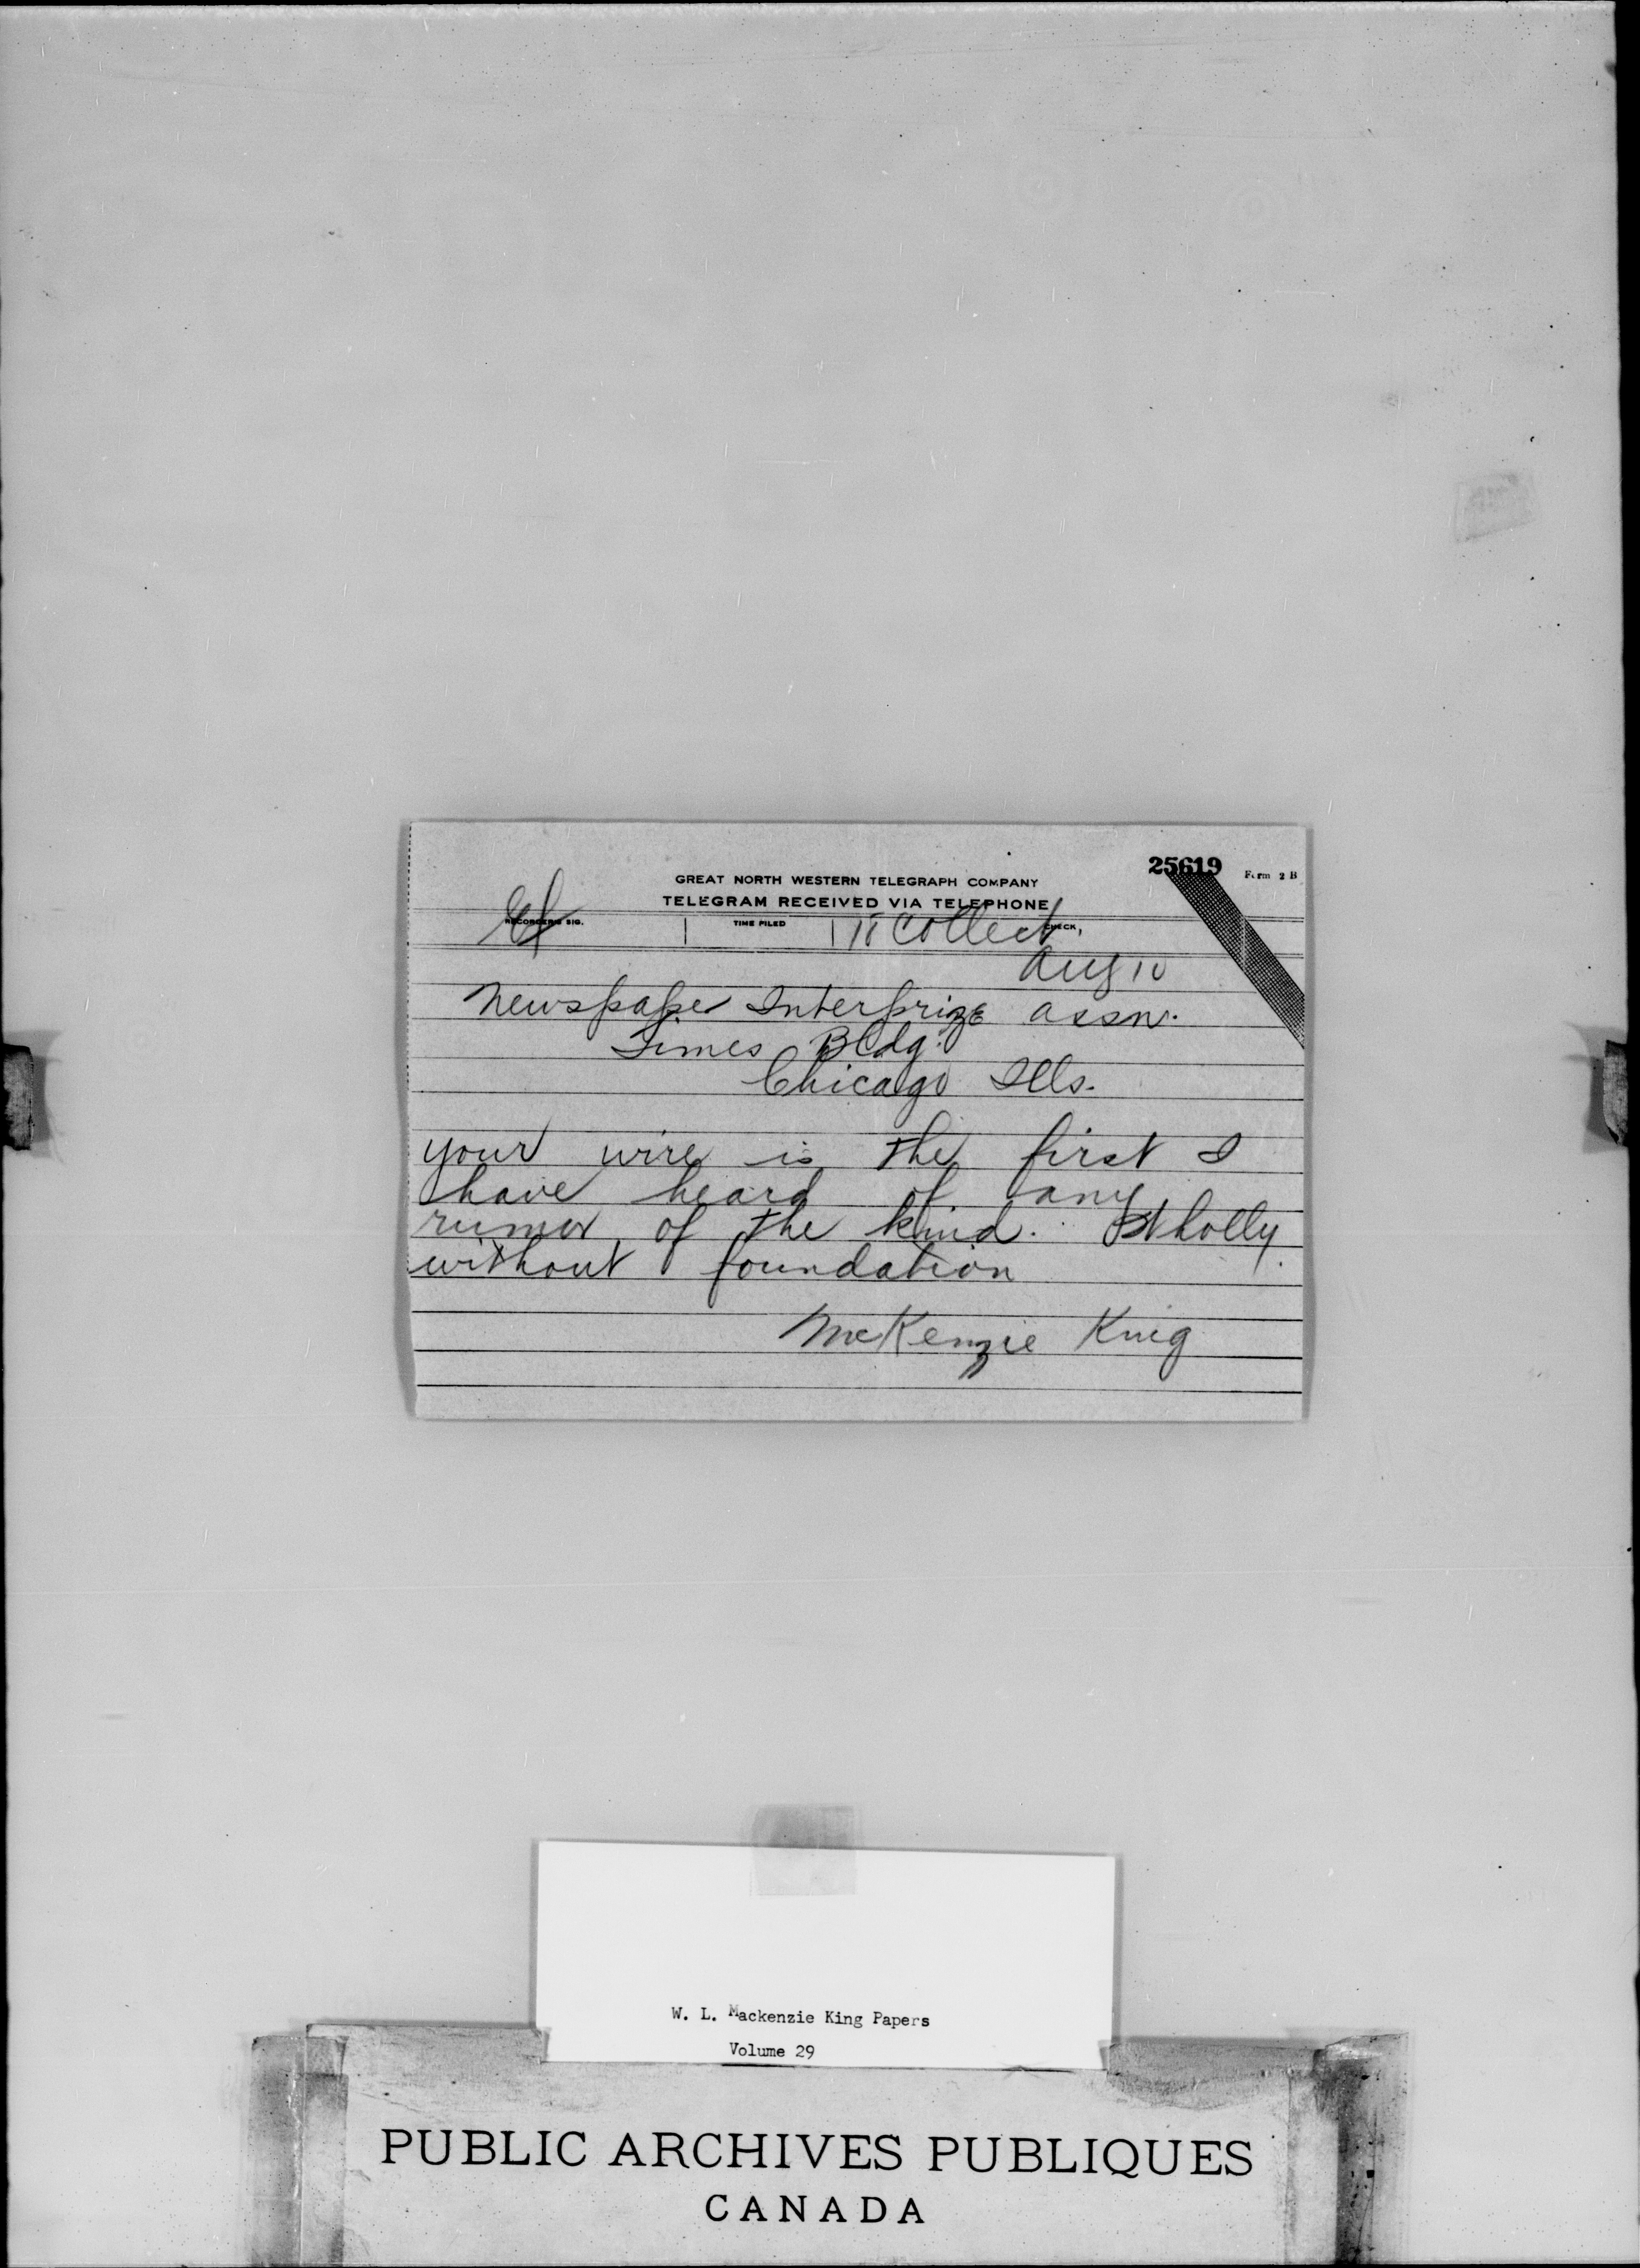 25619
Form 2 B
GREAT NORTH WESTERN TELEGRAPH COMPANY
TELEGRAM RECEIVED VIA TELEPHONE
RECORDER'S SIG. TIME FILED CHECK,
Collect
Aug 10
Newspaper Interprize Assn.
Times Bldg.
Chicago Ills.
your wire is the first I
have heard of any
rumor of the kind. Wholly
without foundation
McKenzie King
W. L. Mackenzie King Papers
Volume 29
PUBLIC ARCHIVES PUBLIQUES
CANADA